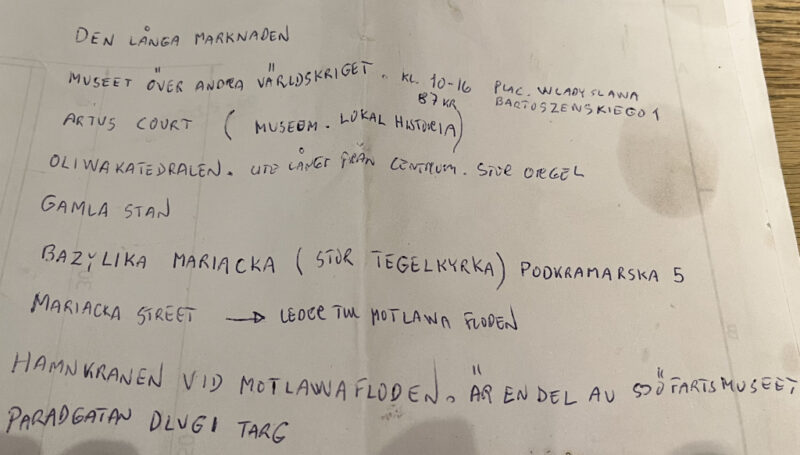 DEN LÅNGA MARKNADEN
MUSEET ÖVER ANDRA VÄRLDSKRIGET. KL. 10-16 PLAC. WLADYSLAWA
87 KR BARTOSZENSKIEGO 1
ARTUS COURT (MUSEUM. LOKAL HISTORIA)
OLIWAKATEDRALEN. UTE LÅNGT FRÅN CENTRUM. STOR ORGEL
GAMLA STAN
BAZYLIKA MARIACKA (STOR TEGELKYRKA) PODKRAMARSKA 5
MARIACKA STREET → LEDER TILL MOTLAWA FLODEN
HAMNKRANEN VID MOTLAWAFLODEN. ÄR EN DEL AV SJÖFARTSMUSEET
PARADGATAN DLUGI TARG